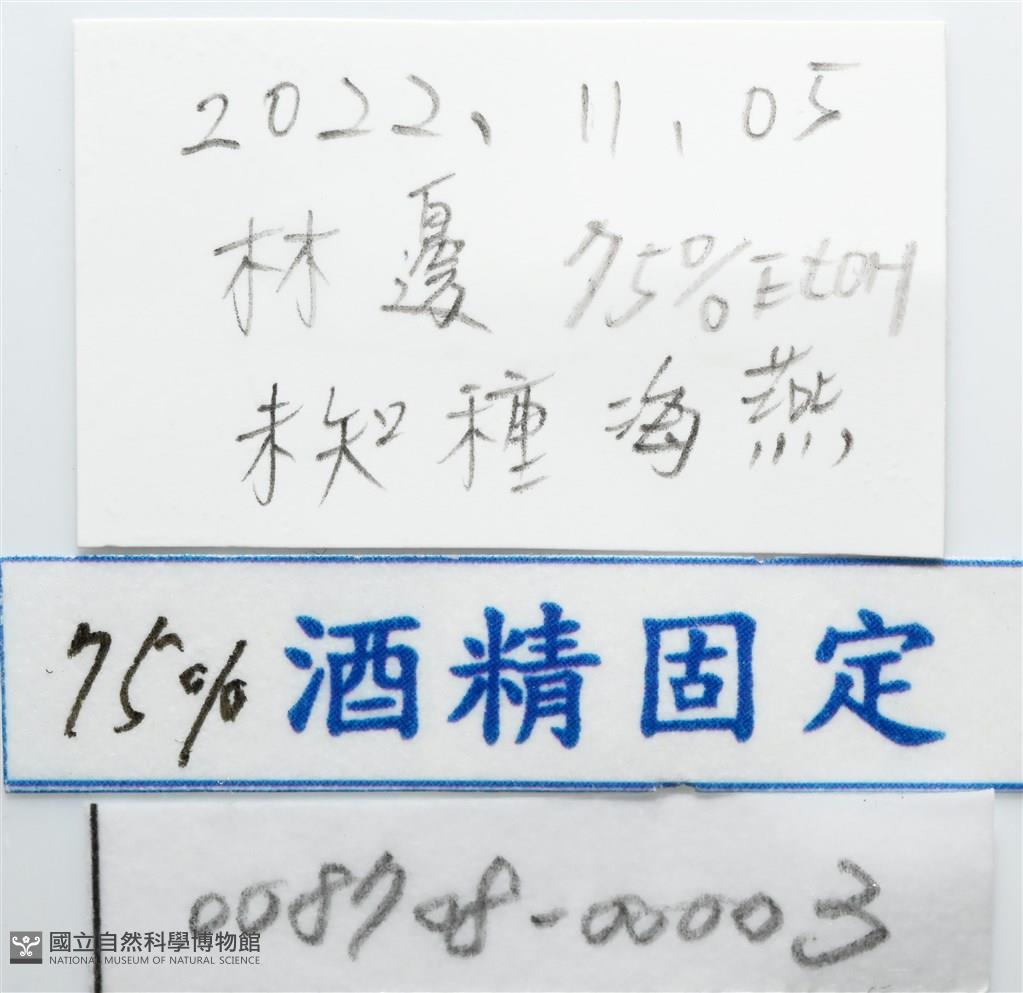 2022、11、05
林邊 75% EtOH
未知種海燕
75% 酒精固定
008708-00003
國立自然科學博物館
NATIONAL MUSEUM OF NATURAL SCIENCE